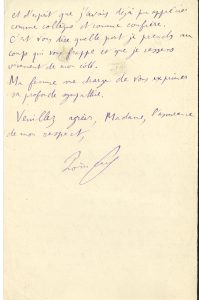 et d'esprit que j'avais déjà pu apprécier
comme collègue et comme confrère.
C'est vous dire quelle part je prends au
coup qui vous frappe et que je ressens
vivement de mon côté.
Ma femme me charge de vous exprimer
sa profonde sympathie.
Veuillez agréer, Madame, l'assurance
de mon respect,